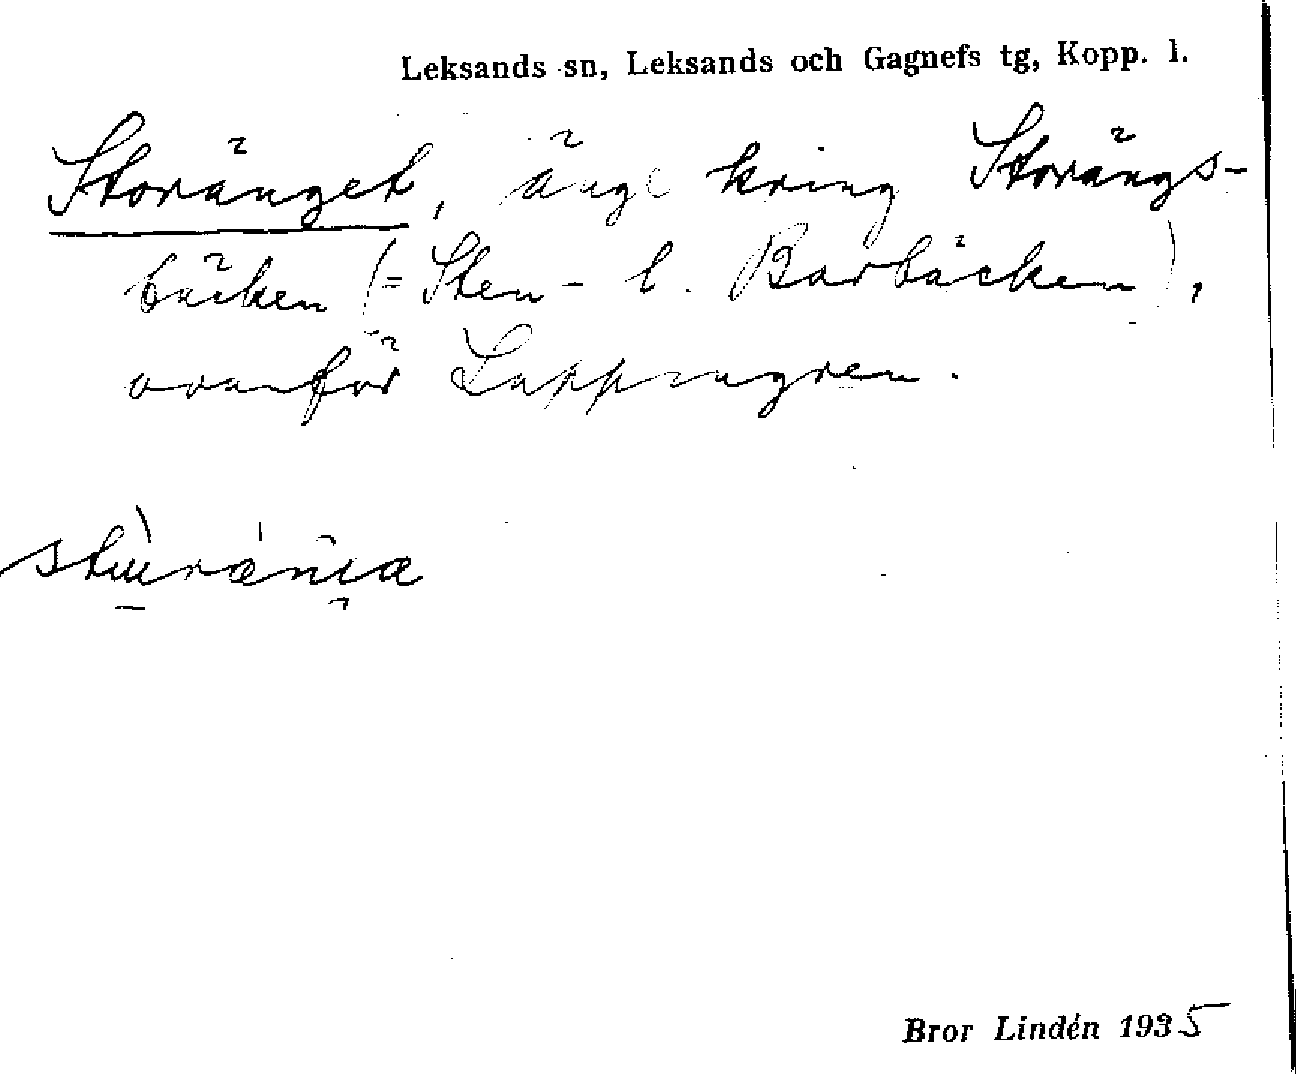 Leksands sn, Leksands och Gagnefs tg, Kopp. l.
Storänget, änge kring Storängs-
bäcken (= Sten- l. Barbäcken),
ovanför Lappmyren.
Bror Lindén 1935